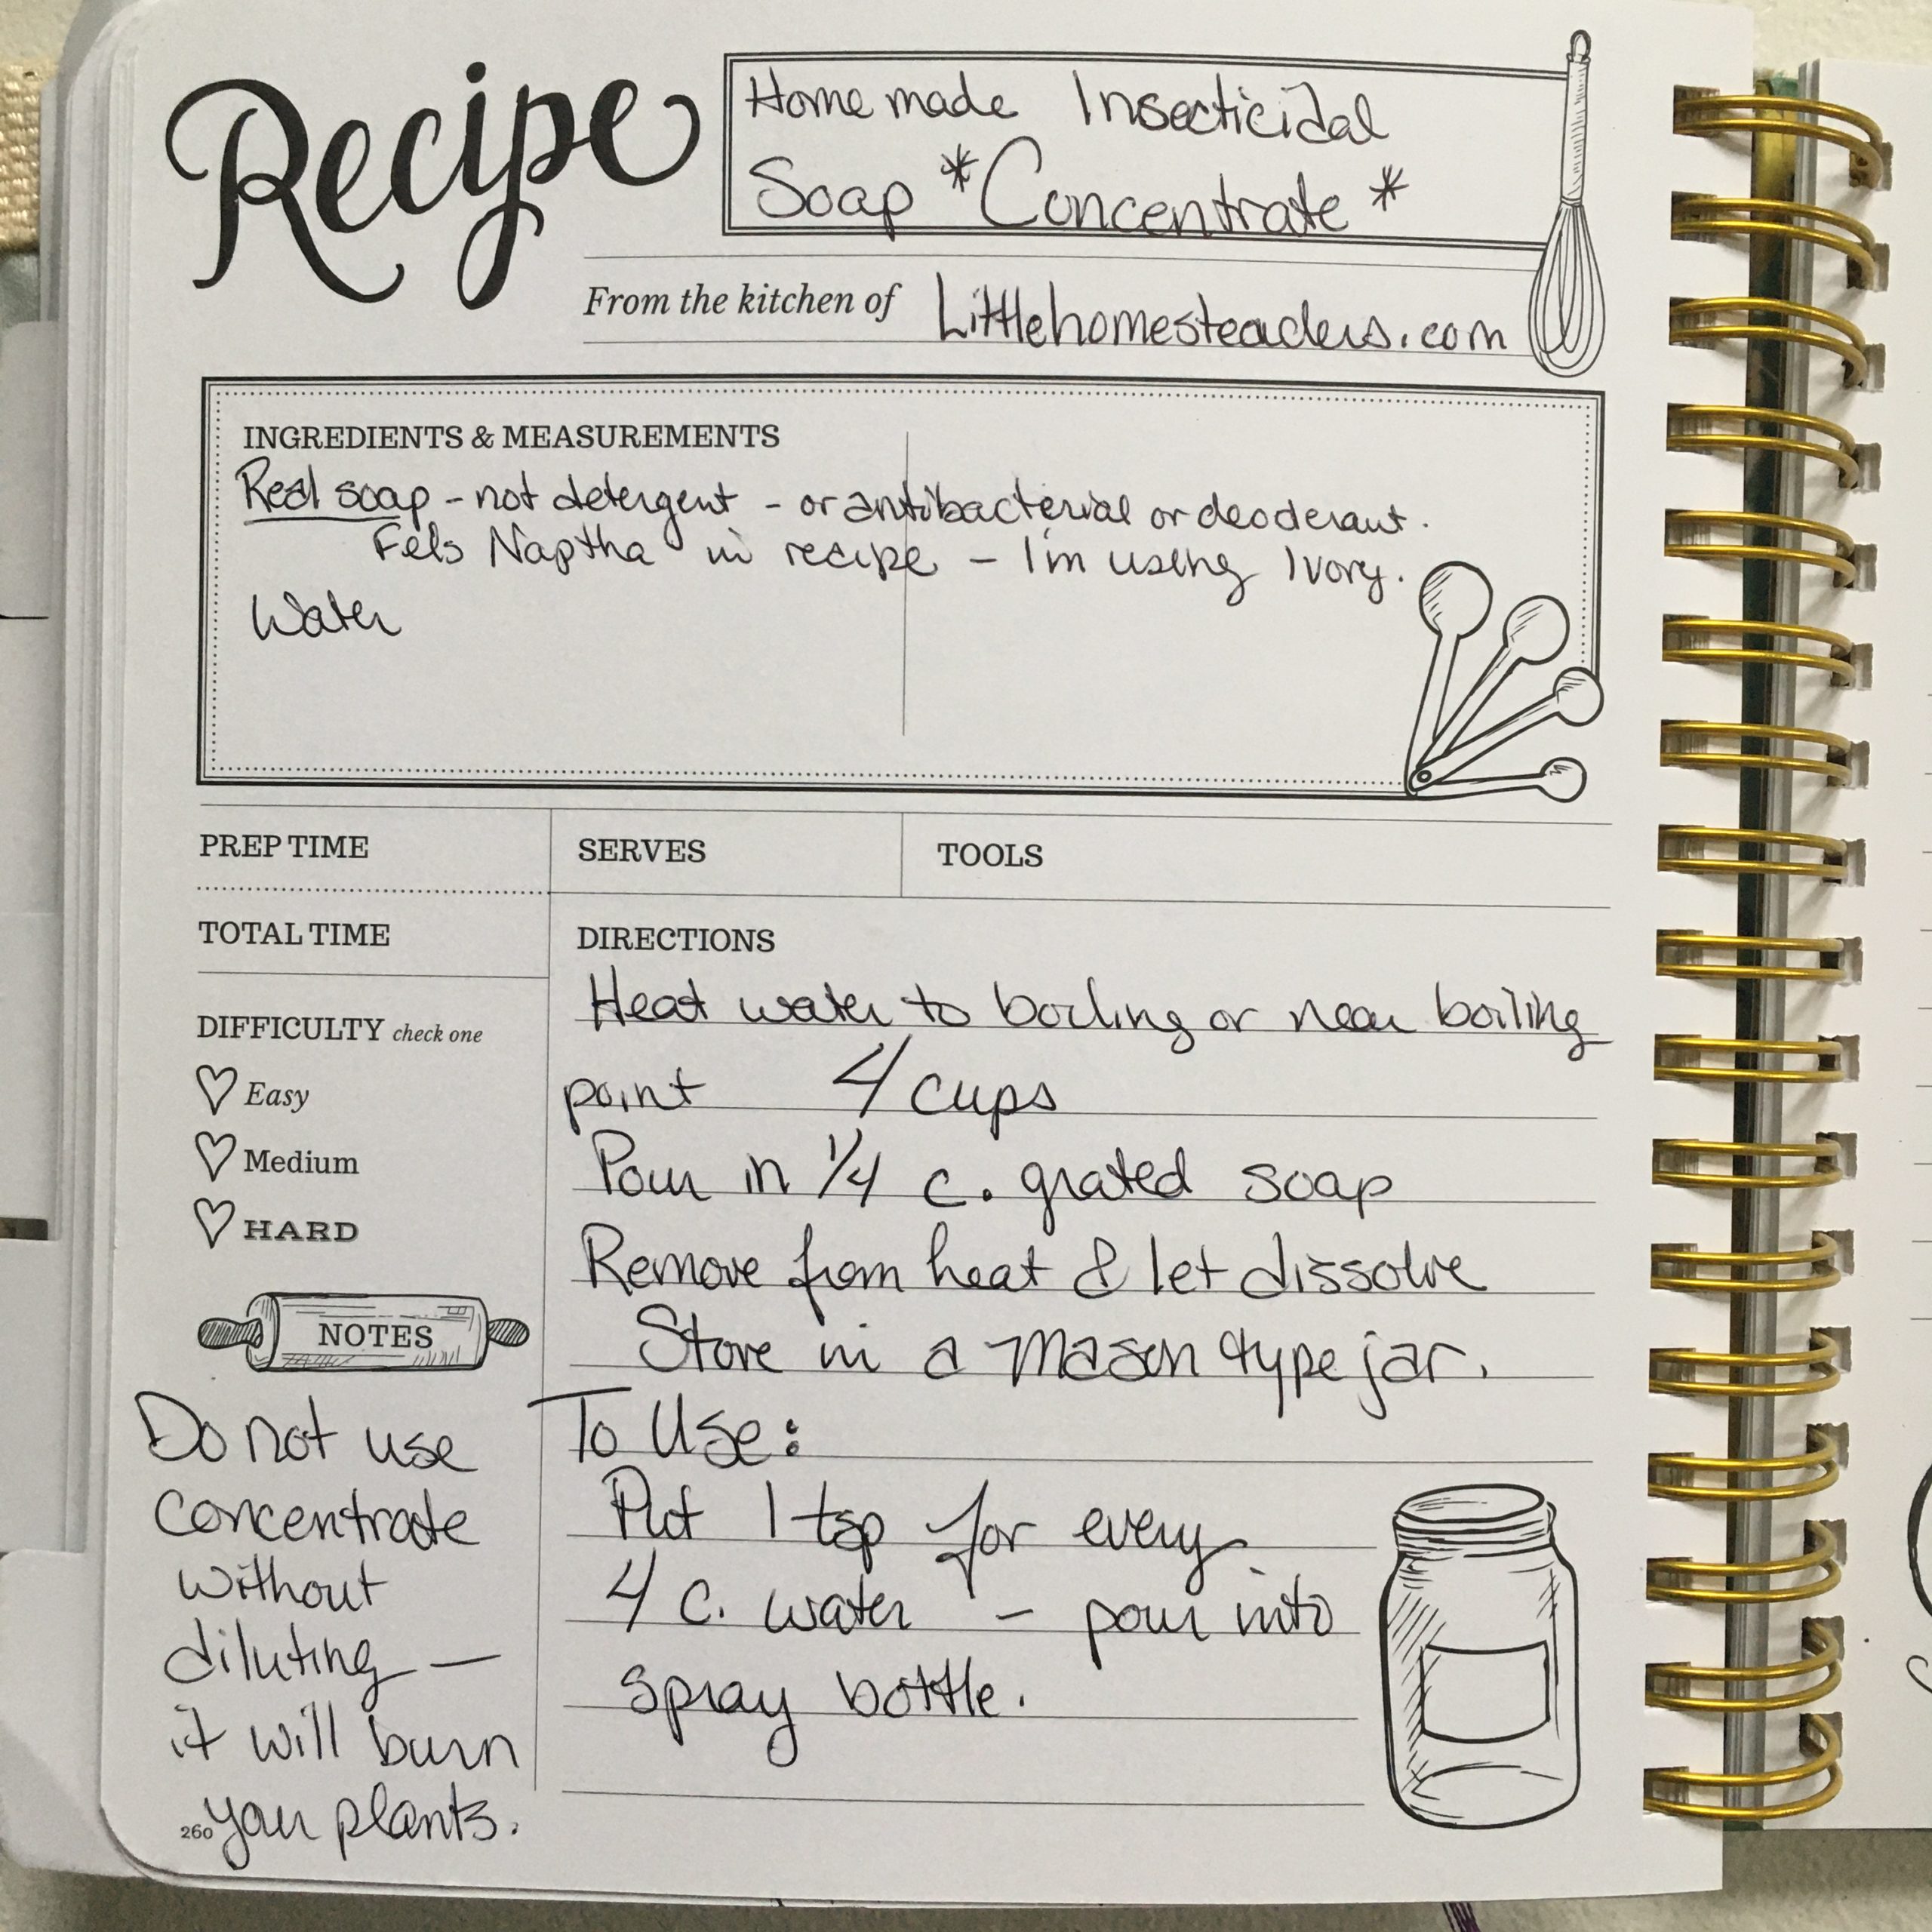 Recipe
Homemade Insecticidal
Soap *Concentrate*
From the kitchen of Littlehomesteaders.com
INGREDIENTS & MEASUREMENTS
Real soap - not detergent - or antibacterial or deoderant.
Fels Naptha in recipe - I'm using Ivory.
Water
PREP TIME
SERVES
TOOLS
TOTAL TIME
DIFFICULTY check one
Easy
Medium
HARD
NOTES
Do not use
concentrate
without
diluting —
it will burn
your plants.
DIRECTIONS
Heat water to boiling or near boiling
point 4 cups
Pour in 1/4 c. grated soap
Remove from heat & let dissolve
Store in a mason type jar.
To Use:
Put 1 tsp for every
4 c. water - pour into
spray bottle.
260